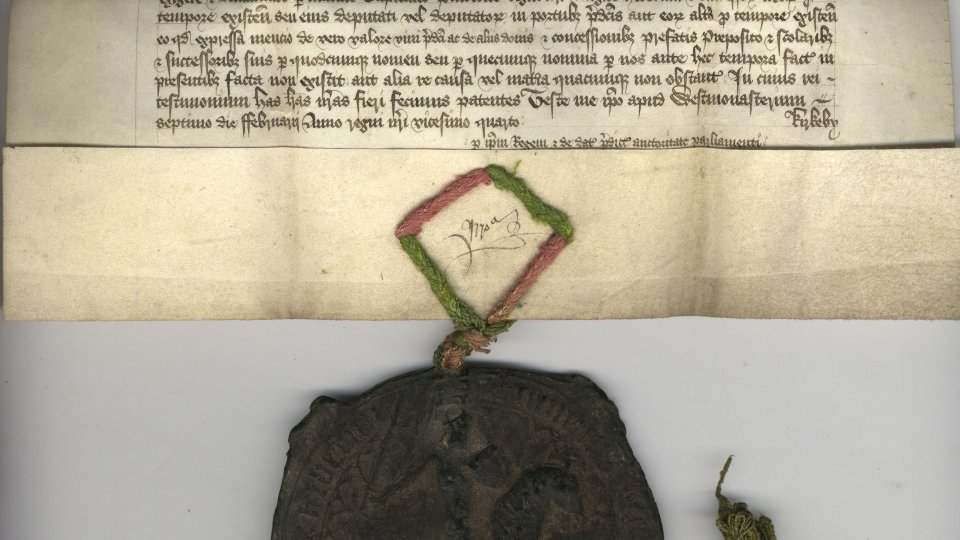 tempore existen seu eius deputati vel deputator in portubz pdcis aut eor alto p tempore existen
eo qd expressa mencio de vero valore vini pdci ac de aliis donis & concessionibz prefatis Preposito & scolaribz
& successoribz suis p quodcumqz nomen seu p quecumqz nomina p nos ante hec tempora fact in
presentibz facta non existit aut alia re causa vel matia quacumqz non obstant In cuius rei
testimonium has lras nras fieri fecimus patentes Teste me ipo apud Westmonasterium
septimo die ffebruarii Anno regni nri vicesimo quarto Kirkeby
p ipm Regem & de dat pdict auctoritate parliamenti